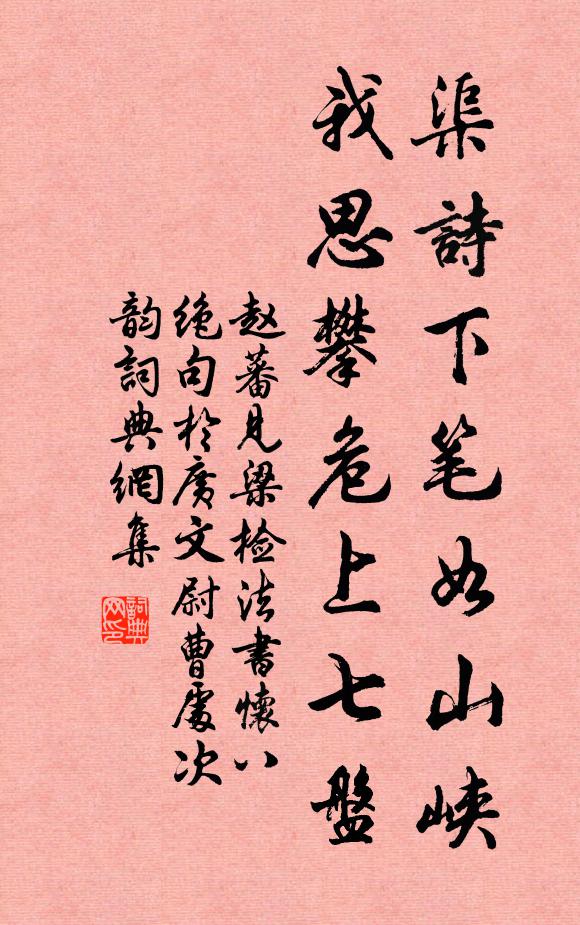 渠詩下笔如山峡
我思攀危上七盤
赵蕃见梁检法書懷八
绝句於廣文尉曹處次
韵詞典網集
詞典
网印